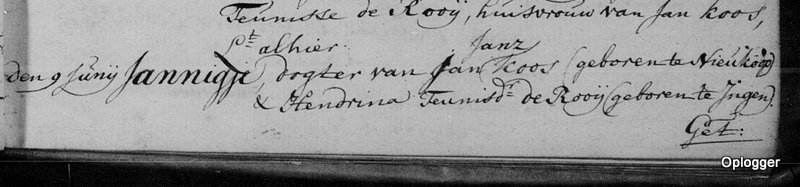 Teunisse de Rooÿ, huisvrouw van Jan Koos,
Pt alhier.
Janz
den 9 Junÿ Jannigje dogter van Jan Koos (geboren te Nieukoop)
& Hendrina Teunisdr de Rooÿ (geboren te Ingen).
Get:
Oplogger